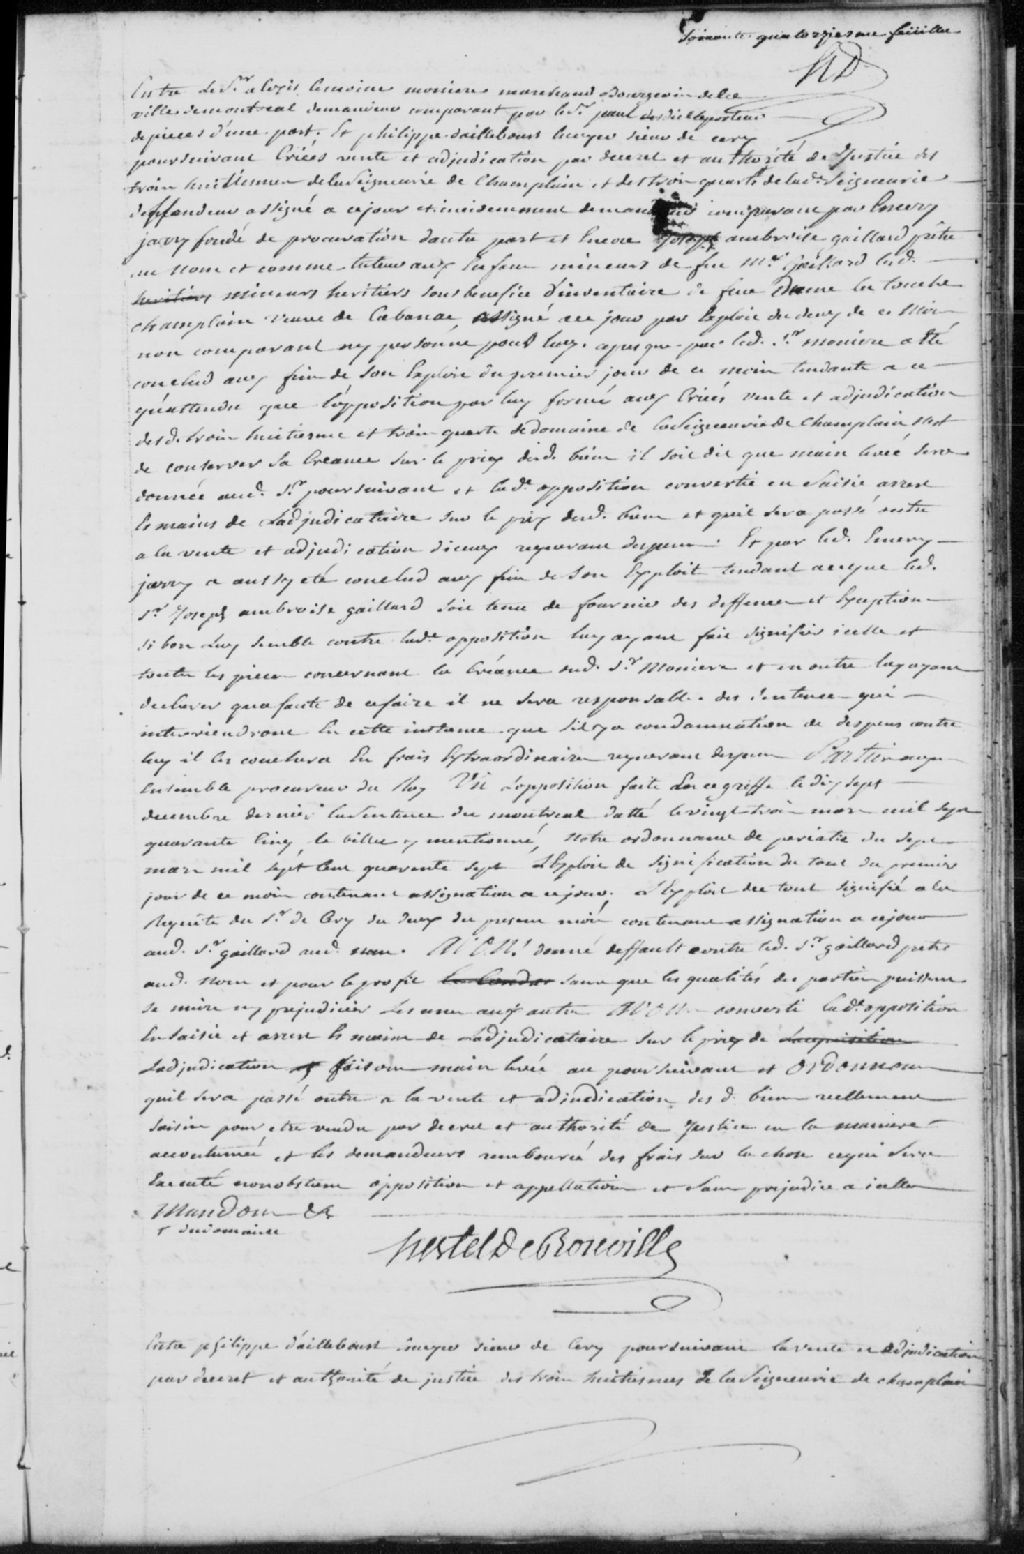 Soixante quatorziesme feuillet
hD
Entre le Sr. alexis lemoine moniere marchand Bourgeois de la
ville de montreal demandeur comparant par le Sr. paul porteur
de pieces d'une part. Et philippe dailleboust Ecuyer sieur de cery
poursuivant Criées vente et adjudication par decret et authorité de Justice des
trois huitiesmes de la Seigneurie de Champlain et des trois quarts de lad. Seigneurie
deffendeur assigné a ce jour et incidemment demandeur comparant par Emery
jarry fondé de procuration dautre part et Encore Joseph ambroise gaillard prêtre
au Nom et comme tuteur aux Enfans mineurs de feu Mr. Gaillard lesd.
heritiers mineurs heritiers sous benefice d'inventaire de feue Dame la touche
champlain veuve de Cabanac, assigné a ce jour par Exploit du deux de ce Mois
non comparant ny personne pour luy. apres que par led. Sr. moniere a Eté
conclud aux fins de son Exploit du premier jour de ce mois tendante a ce
qu'attendu que l'opposition par luy formé aux Criées vente et adjudication
desd. trois huitiesme et trois quarts de domaine de la Seigneurie de Champlain n'est
de conserver sa Creance sur le prix desd. biens il soit dit que main levée sera
donnée aud. Sr. poursuivant et lad. opposition convertie en saisie arrest
Es mains de L'adjudicataire sur le prix desd. biens et quil sera passé outre
a la vente et adjudication diceux requerant depens. Et par led. Emery
jarry a aussy eté conclud aux fins de son Exploit tendant a ce que led.
Sr. Joseph ambroise gaillard soit tenu de fournir des deffenses et Exeptions
si bon luy semble contre lad. opposition luy ayant fait signifier icelle et
toutes les pieces concernant la Créance dud. Sr. Moniere et en outre luy ayant
declarer qua faute de ce faire il ne sera responsable des Sentences qui
interviendront En cette instance que s'il y a condamnation de despens contre
luy il les couchera En frais Extraordinaires requerant depens Parties ouyes
Ensemble procureur du Roy Vû l'opposition faite En ce greffe le dix sept
decembre dernier la Sentence de montreal datté le vingt trois mars mil sept
quarante Cinq, le billet y mentionné, Notre ordonnance de du sept
mars mil sept Cent quarente sept L'Exploit de signification du tout du premier
jour de ce mois contenant assignation a ce jour, L'Exploit du tout signifié a la
Requête du Sr. de Cery du deux du present mois contenant assignation a ce jour
aud. Sr. gaillard aud. nom. NOUS donné deffault contre led. Sr. gaillard prêtre
aud. Nom et pour le profit sans que les qualités des parties puissent
se nuire ny prejudicier Les unes aux autres NOUS converti lad. opposition
En saisie et arrest Es mains de L'adjudicataire sur le prix de Lacquisition
Ladjudication faisons main levée au poursuivant et Ordonnons
quil sera passé outre a la vente et adjudication desd. biens reellement
saisis pour etre vendu par decret et authorité de Justice en la maniere
accoutumée et les demandeurs remboursé des frais sur la chose ce qui sera
Executé nonobstant opposition et appellation et sans prejudice a icelles
Mandons &c
hertel De Rouville
Entre philippe d'ailleboust Ecuyer sieur de Cery poursuivant la vente et adjudication
par decret et authorité de justice des trois huitiesmes de la Seigneurie de champlain